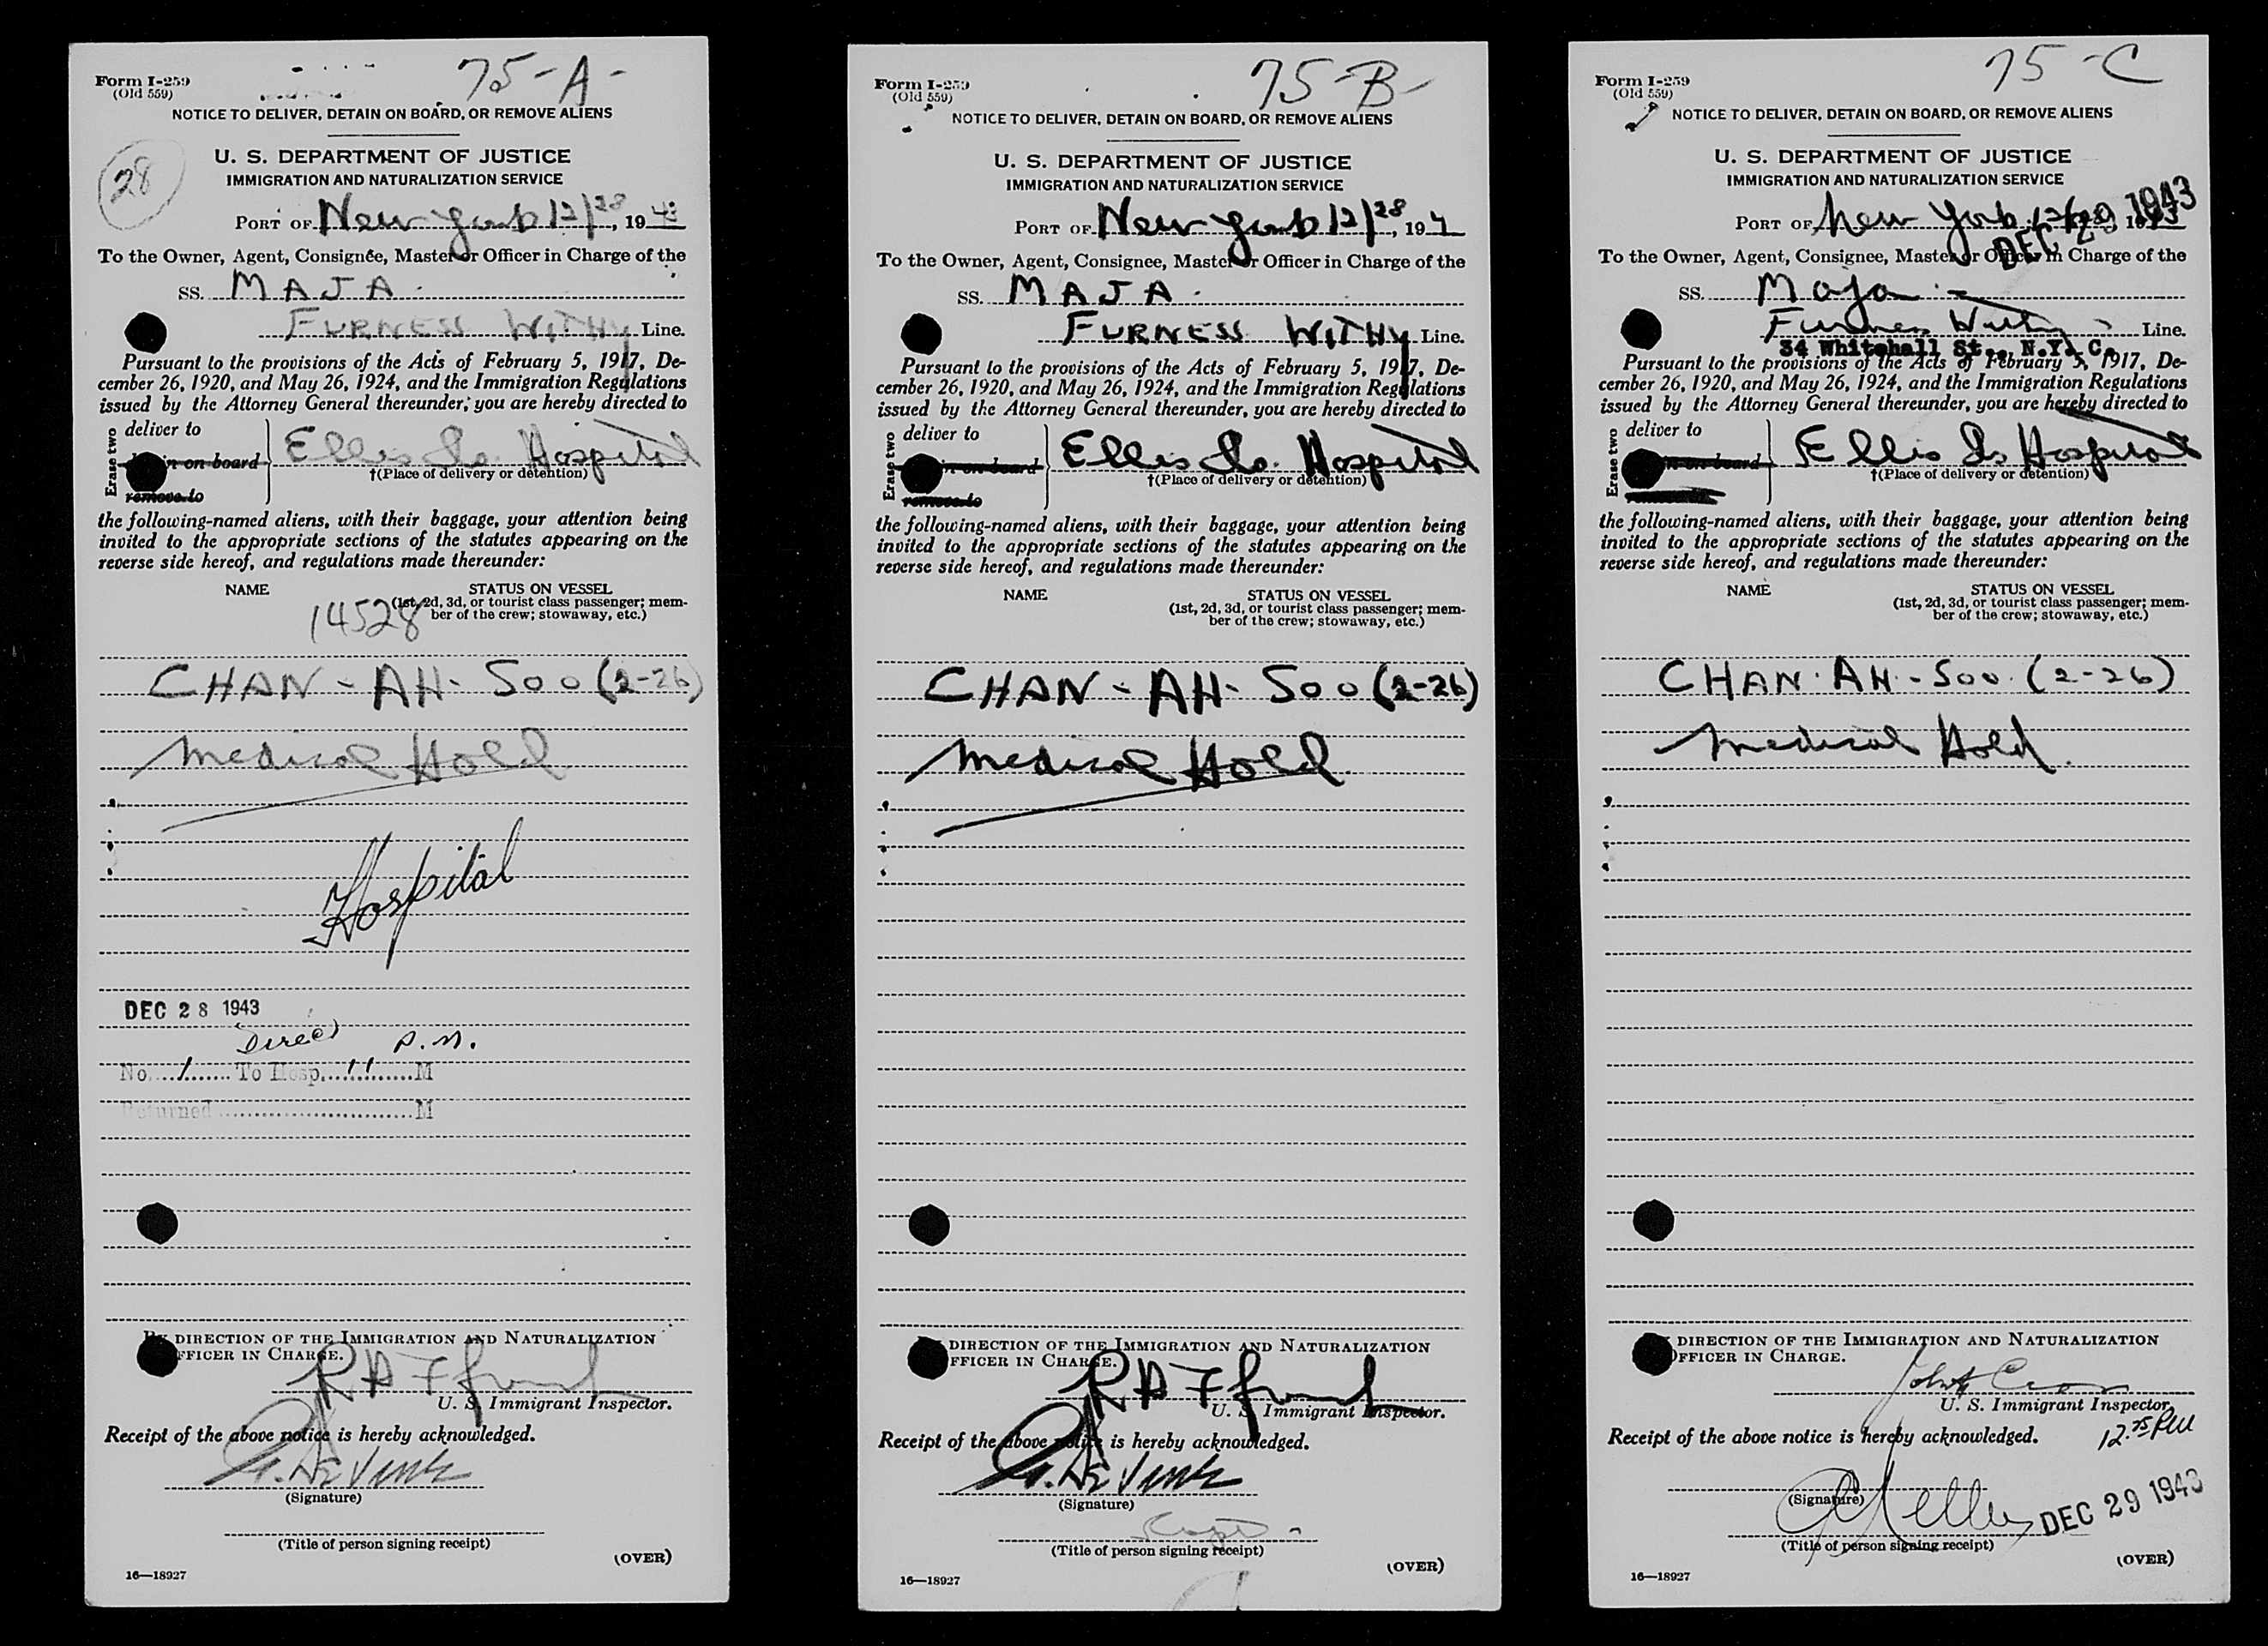 75-A-
Form I-259
(Old 559)
NOTICE TO DELIVER, DETAIN ON BOARD, OR REMOVE ALIENS
28
U. S. DEPARTMENT OF JUSTICE
IMMIGRATION AND NATURALIZATION SERVICE
PORT OF New York 12/28, 1943
To the Owner, Agent, Consignee, Master or Officer in Charge of the
SS. MAJA
FURNESS WITHY Line.
Pursuant to the provisions of the Acts of February 5, 1917, De-
cember 26, 1920, and May 26, 1924, and the Immigration Regulations
issued by the Attorney General thereunder, you are hereby directed to
Erase two
deliver to
in on board
remove to
Ellis Is. Hospital
†(Place of delivery or detention)
the following-named aliens, with their baggage, your attention being
invited to the appropriate sections of the statutes appearing on the
reverse side hereof, and regulations made thereunder:
NAME STATUS ON VESSEL
(1st, 2d, 3d, or tourist class passenger; mem-
ber of the crew; stowaway, etc.)
14528
CHAN - AH - Soo (2-26)
Medical Hold
Hospital
DEC 28 1943
Direct P.M.
No. 1 To Hosp. 11 M
Returned M
BY DIRECTION OF THE IMMIGRATION AND NATURALIZATION
OFFICER IN CHARGE.
U. S. Immigrant Inspector.
Receipt of the above notice is hereby acknowledged.
(Signature)
(Title of person signing receipt)
(OVER)
16—18927
75-B-
Form I-259
(Old 559)
NOTICE TO DELIVER, DETAIN ON BOARD, OR REMOVE ALIENS
U. S. DEPARTMENT OF JUSTICE
IMMIGRATION AND NATURALIZATION SERVICE
PORT OF New York 12/28, 194
To the Owner, Agent, Consignee, Master or Officer in Charge of the
SS. MAJA
FURNESS WITHY Line.
Pursuant to the provisions of the Acts of February 5, 1917, De-
cember 26, 1920, and May 26, 1924, and the Immigration Regulations
issued by the Attorney General thereunder, you are hereby directed to
Erase two
deliver to
in on board
remove to
Ellis Is. Hospital
†(Place of delivery or detention)
the following-named aliens, with their baggage, your attention being
invited to the appropriate sections of the statutes appearing on the
reverse side hereof, and regulations made thereunder:
NAME STATUS ON VESSEL
(1st, 2d, 3d, or tourist class passenger; mem-
ber of the crew; stowaway, etc.)
CHAN - AH - Soo (2-26)
Medical Hold
DIRECTION OF THE IMMIGRATION AND NATURALIZATION
OFFICER IN CHARGE.
U. S. Immigrant Inspector.
Receipt of the above notice is hereby acknowledged.
(Signature)
(Title of person signing receipt)
(OVER)
16—18927
75-C
Form I-259
(Old 559)
NOTICE TO DELIVER, DETAIN ON BOARD, OR REMOVE ALIENS
U. S. DEPARTMENT OF JUSTICE
IMMIGRATION AND NATURALIZATION SERVICE
PORT OF New York
DEC 29 1943
To the Owner, Agent, Consignee, Master or Officer in Charge of the
SS. Maja
Furness Withy Line.
34 Whitehall St., N.Y. C.
Pursuant to the provisions of the Acts of February 5, 1917, De-
cember 26, 1920, and May 26, 1924, and the Immigration Regulations
issued by the Attorney General thereunder, you are hereby directed to
Erase two
deliver to
in on board
Ellis Is Hospital
†(Place of delivery or detention)
the following-named aliens, with their baggage, your attention being
invited to the appropriate sections of the statutes appearing on the
reverse side hereof, and regulations made thereunder:
NAME STATUS ON VESSEL
(1st, 2d, 3d, or tourist class passenger; mem-
ber of the crew; stowaway, etc.)
CHAN - AH - Soo (2-26)
Medical Hold.
DIRECTION OF THE IMMIGRATION AND NATURALIZATION
OFFICER IN CHARGE.
U. S. Immigrant Inspector.
Receipt of the above notice is hereby acknowledged.
(Signature)
DEC 29 1943
(Title of person signing receipt)
(OVER)
16—18927